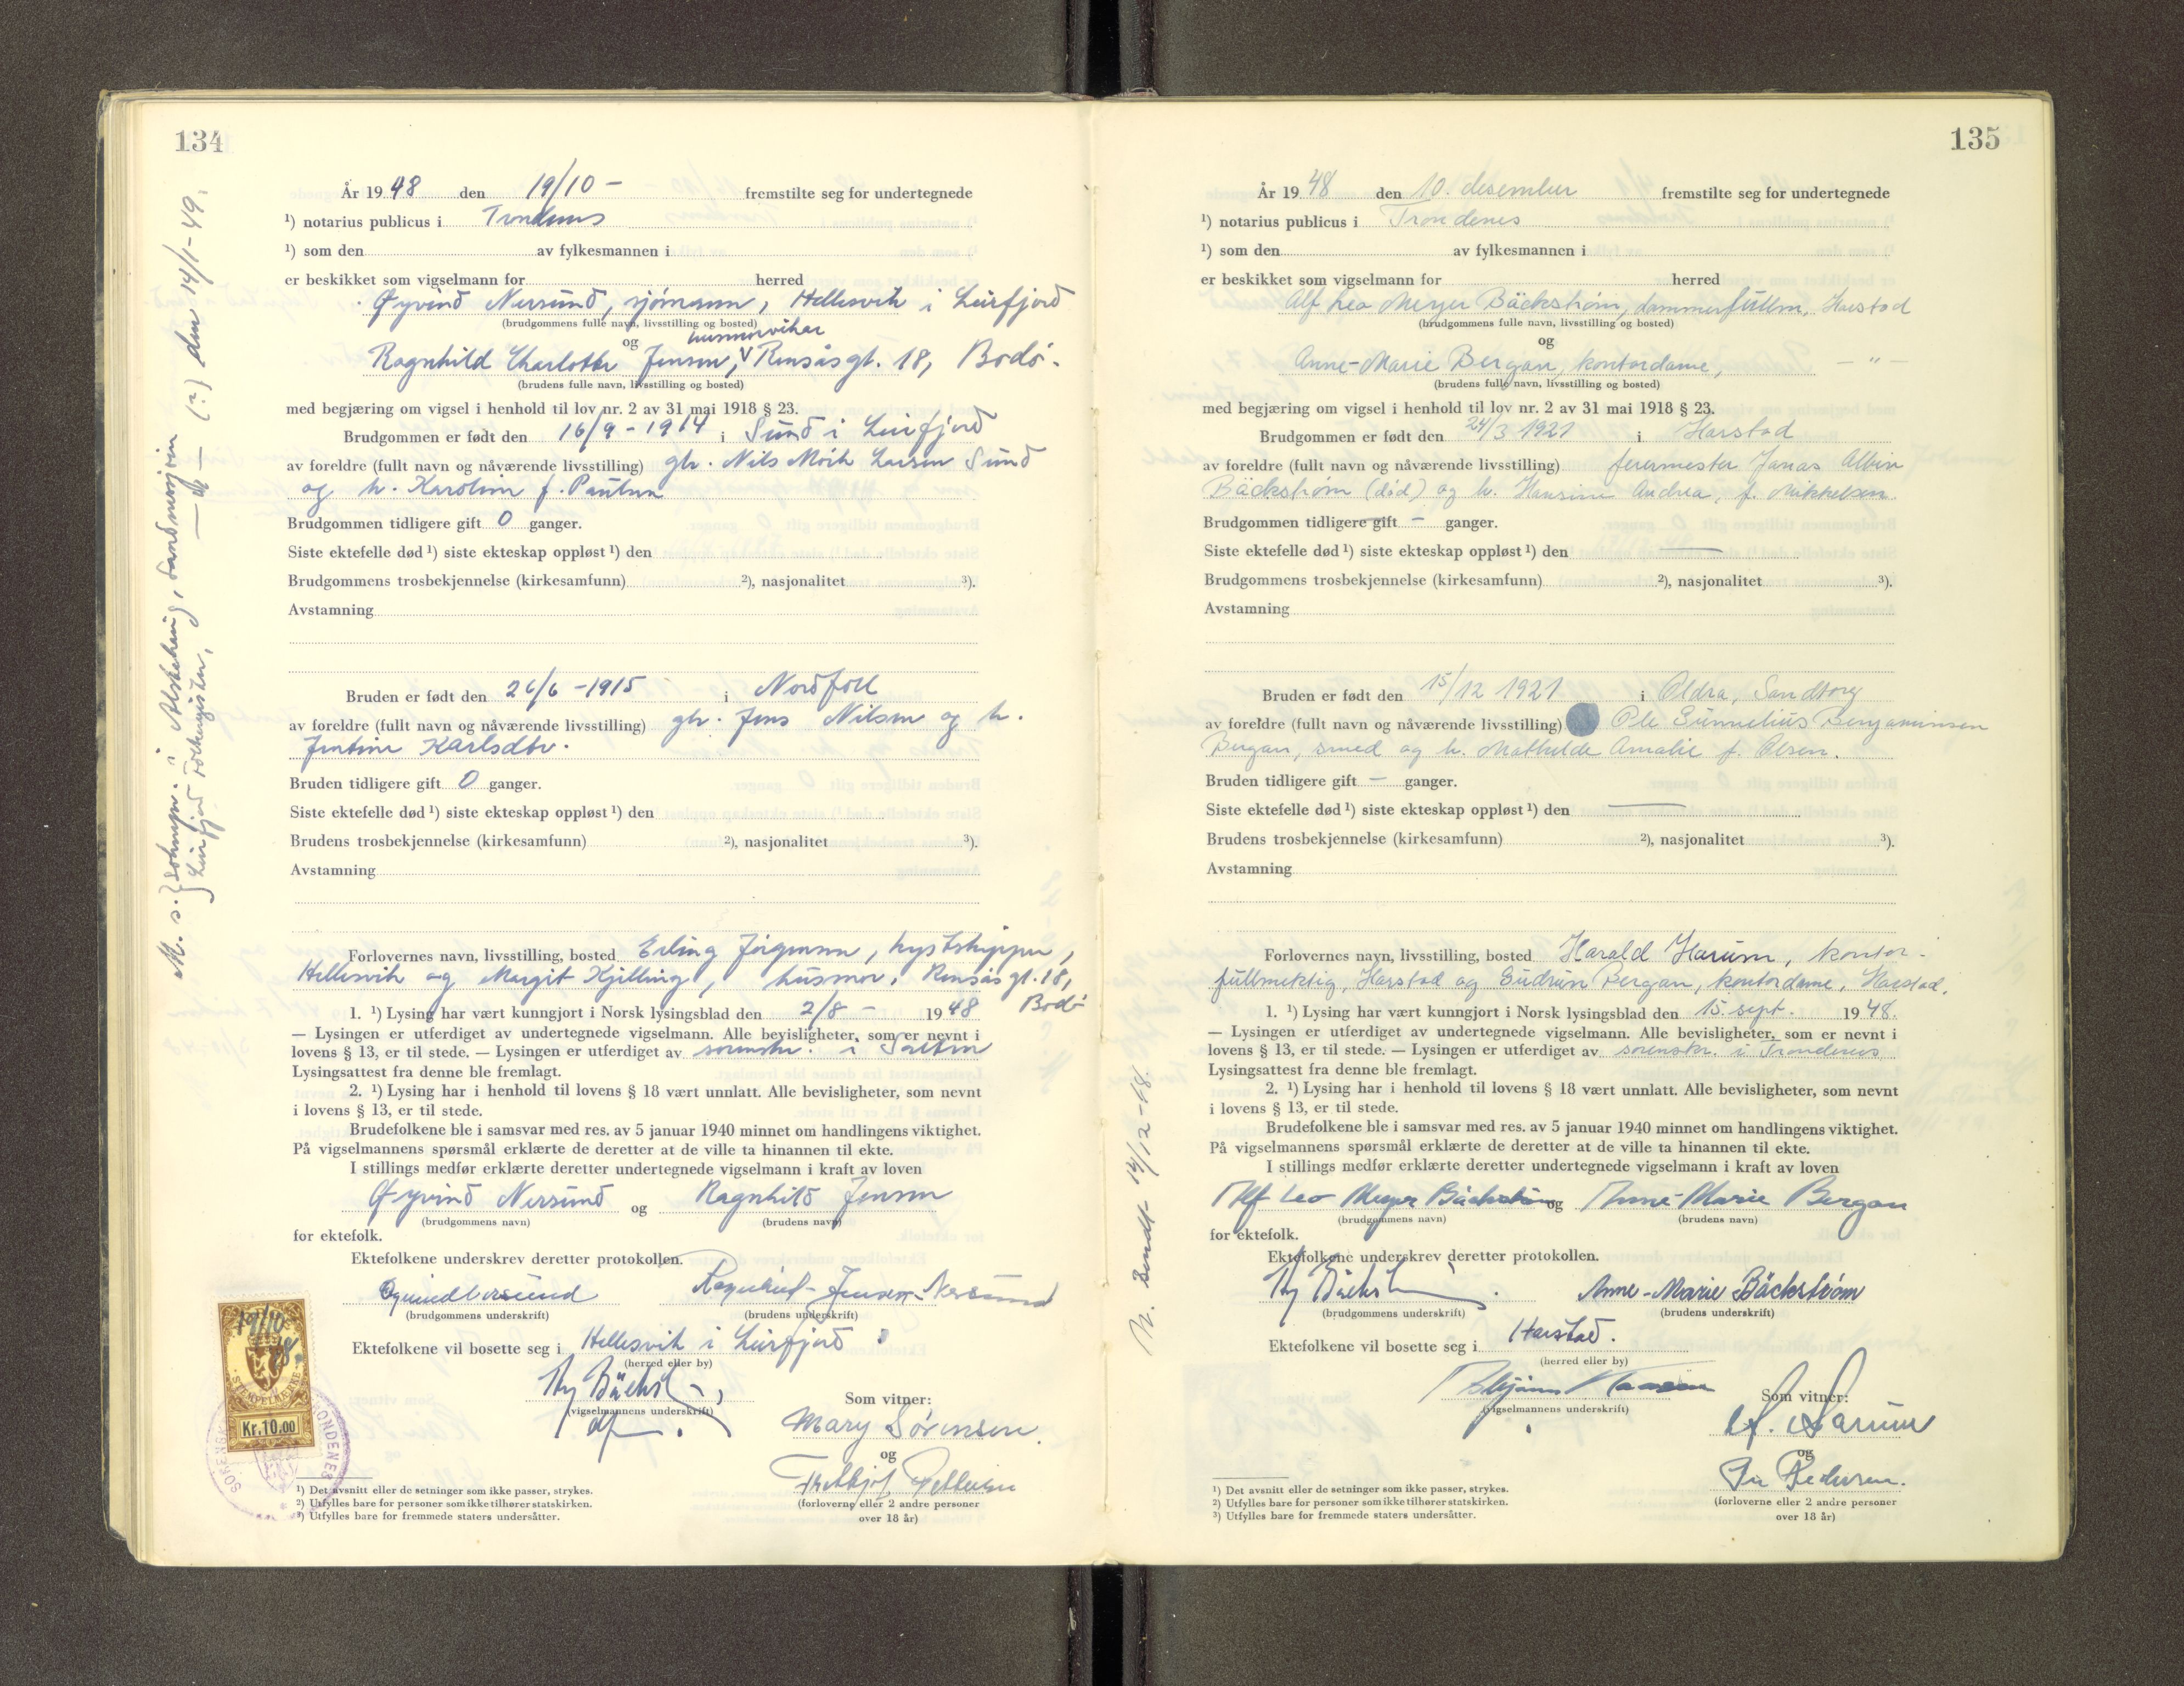 134
År 1948 den 19/10 – fremstilte seg for undertegnede
¹) notarius publicus i Trondenes
¹) som den av fylkesmannen i
er beskikket som vigselmann for herred
Øyvind Nersund, sjømann, Hellesvik i Leirfjord
(brudgommens fulle navn, livsstilling og bosted)
og
husmorvikar
Ragnhild Charlotte Jensen, V Rensåsgt. 18, Bodø.
(brudens fulle navn, livsstilling og bosted)
med begjæring om vigsel i henhold til lov nr. 2 av 31 mai 1918 § 23.
Brudgommen er født den 16/9 – 1914 i Sund i Leirfjord
av foreldre (fullt navn og nåværende livsstilling) gbr. Nils Larsen Sund
og h. Karoline f. Paulsen
Brudgommen tidligere gift 0 ganger.
Siste ektefelle død ¹) siste ekteskap oppløst ¹) den
Brudgommens trosbekjennelse (kirkesamfunn) ²), nasjonalitet ³).
Avstamning
Bruden er født den 26/6 – 1915 i Nordfold
av foreldre (fullt navn og nåværende livsstilling) gbr. Jens Nilsen og h.
Jentine Karlsdtr.
Bruden tidligere gift 0 ganger.
Siste ektefelle død ¹) siste ekteskap oppløst ¹) den
Brudens trosbekjennelse (kirkesamfunn) ²), nasjonalitet ³).
Avstamning
Forlovernes navn, livsstilling, bosted Erling Jørgensen, kystskipper,
Hellesvik og Margit Kjelling, husmor, Rensåsgt. 18,
Bodø
1. ¹) Lysing har vært kunngjort i Norsk lysingsblad den 2/8 – 1948
— Lysingen er utferdiget av undertegnede vigselmann. Alle bevisligheter, som er nevnt i
lovens § 13, er til stede. — Lysingen er utferdiget av sorenskr. i Salten
Lysingsattest fra denne ble fremlagt.
2. ¹) Lysing har i henhold til lovens § 18 vært unnlatt. Alle bevisligheter, som nevnt
i lovens § 13, er til stede.
Brudefolkene ble i samsvar med res. av 5 januar 1940 minnet om handlingens viktighet.
På vigselmannens spørsmål erklærte de deretter at de ville ta hinannen til ekte.
I stillings medfør erklærte deretter undertegnede vigselmann i kraft av loven
Øyvind Nersund og Ragnhild Jensen
(brudgommens navn) (brudens navn)
for ektefolk.
Ektefolkene underskrev deretter protokollen.
Øyvind Nersund Ragnhild Jensen-Nersund
(brudgommens underskrift) (brudens underskrift)
Ektefolkene vil bosette seg i Hellesvik i Leirfjord
(herred eller by)
Som vitner:
(vigselmannens underskrift)
Mary Sørensen
og
(forloverne eller 2 andre personer
over 18 år)
¹) Det avsnitt eller de setninger som ikke passer, strykes.
²) Utfylles bare for personer som ikke tilhører statskirken.
³) Utfylles bare for fremmede staters undersåtter.
19/10
48.
STEMPELMERKE
Kr.10.00
TRONDENES
M. s. Soknepr. i Alstahaug, Sandnessjøen
Leirfjord Folkeregister, — " — (?) den 14/1-49.
135
År 1948 den 10. desember fremstilte seg for undertegnede
¹) notarius publicus i Trondenes
¹) som den av fylkesmannen i
er beskikket som vigselmann for herred
Alf Leo Meyer Bäckstrøm, dommerfullm., Harstad
(brudgommens fulle navn, livsstilling og bosted)
og
Anne-Marie Bergan, kontordame, — " —
(brudens fulle navn, livsstilling og bosted)
med begjæring om vigsel i henhold til lov nr. 2 av 31 mai 1918 § 23.
Brudgommen er født den 24/3 1921 i Harstad
av foreldre (fullt navn og nåværende livsstilling) feiermester Jonas Albin
Bäckstrøm (død) og h. Hansine Andrea, f. Mikkelsen.
Brudgommen tidligere gift – ganger.
Siste ektefelle død ¹) siste ekteskap oppløst ¹) den —
Brudgommens trosbekjennelse (kirkesamfunn) ²), nasjonalitet ³).
Avstamning
Bruden er født den 15/12 1921 i Oldra, Sandtorg
av foreldre (fullt navn og nåværende livsstilling) Ole Gunnelius Benjaminsen
Bergan, smed og h. Mathilde Amalie f. Olsen.
Bruden tidligere gift – ganger.
Siste ektefelle død ¹) siste ekteskap oppløst ¹) den —
Brudens trosbekjennelse (kirkesamfunn) ²), nasjonalitet ³).
Avstamning
Forlovernes navn, livsstilling, bosted Harald Harum, kontor-
fullmektig, Harstad og Gudrun Bergan, kontordame, Harstad.
1. ¹) Lysing har vært kunngjort i Norsk lysingsblad den 15. sept. 1948.
— Lysingen er utferdiget av undertegnede vigselmann. Alle bevisligheter, som er nevnt i
lovens § 13, er til stede. — Lysingen er utferdiget av sorenskr. i Trondenes
Lysingsattest fra denne ble fremlagt.
2. ¹) Lysing har i henhold til lovens § 18 vært unnlatt. Alle bevisligheter, som nevnt
i lovens § 13, er til stede.
Brudefolkene ble i samsvar med res. av 5 januar 1940 minnet om handlingens viktighet.
På vigselmannens spørsmål erklærte de deretter at de ville ta hinannen til ekte.
I stillings medfør erklærte deretter undertegnede vigselmann i kraft av loven
Alf Leo Meyer Bäckstrøm og Anne-Marie Bergan
(brudgommens navn) (brudens navn)
for ektefolk.
Ektefolkene underskrev deretter protokollen.
Anne-Marie Bäckstrøm
(brudgommens underskrift) (brudens underskrift)
Ektefolkene vil bosette seg i Harstad.
(herred eller by)
Som vitner:
(vigselmannens underskrift)
H. Harum
og
Pedersen.
(forloverne eller 2 andre personer
over 18 år)
¹) Det avsnitt eller de setninger som ikke passer, strykes.
²) Utfylles bare for personer som ikke tilhører statskirken.
³) Utfylles bare for fremmede staters undersåtter.
M. sendt 14/12-48.